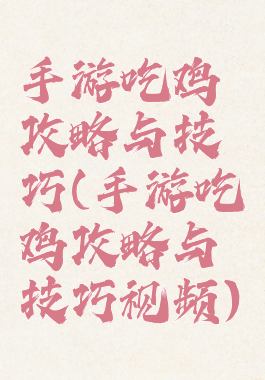 手游吃鸡
攻略与技
巧(手游吃
鸡攻略与
技巧视频)